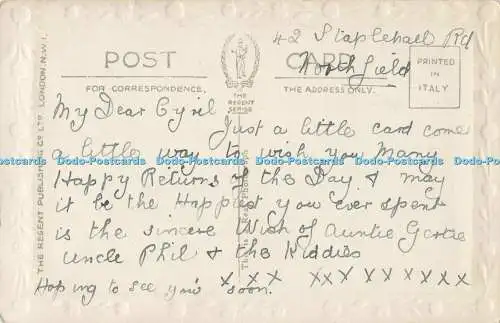 42 Staplehall Rd
Northfield
POST CARD
FOR CORRESPONDENCE.
THE ADDRESS ONLY.
THE
REGENT
SERIES
PRINTED
IN
ITALY
THE REGENT PUBLISHING CO LTD., LONDON, N.W.1.
My Dear Cyril
Just a little card come
a little way to wish you Many
Happy Returns of the Day & may
it be the Happiest you ever spent
is the sincere Wish of Auntie Gertie
Uncle Phil & the Kiddies
Hoping to see you soon. x x x xx x x x x x x x
This is a Real Photo
Dodo-Postcards Dodo-Postcards Dodo-Postcards Dodo-Postcards Dodo-Postcards